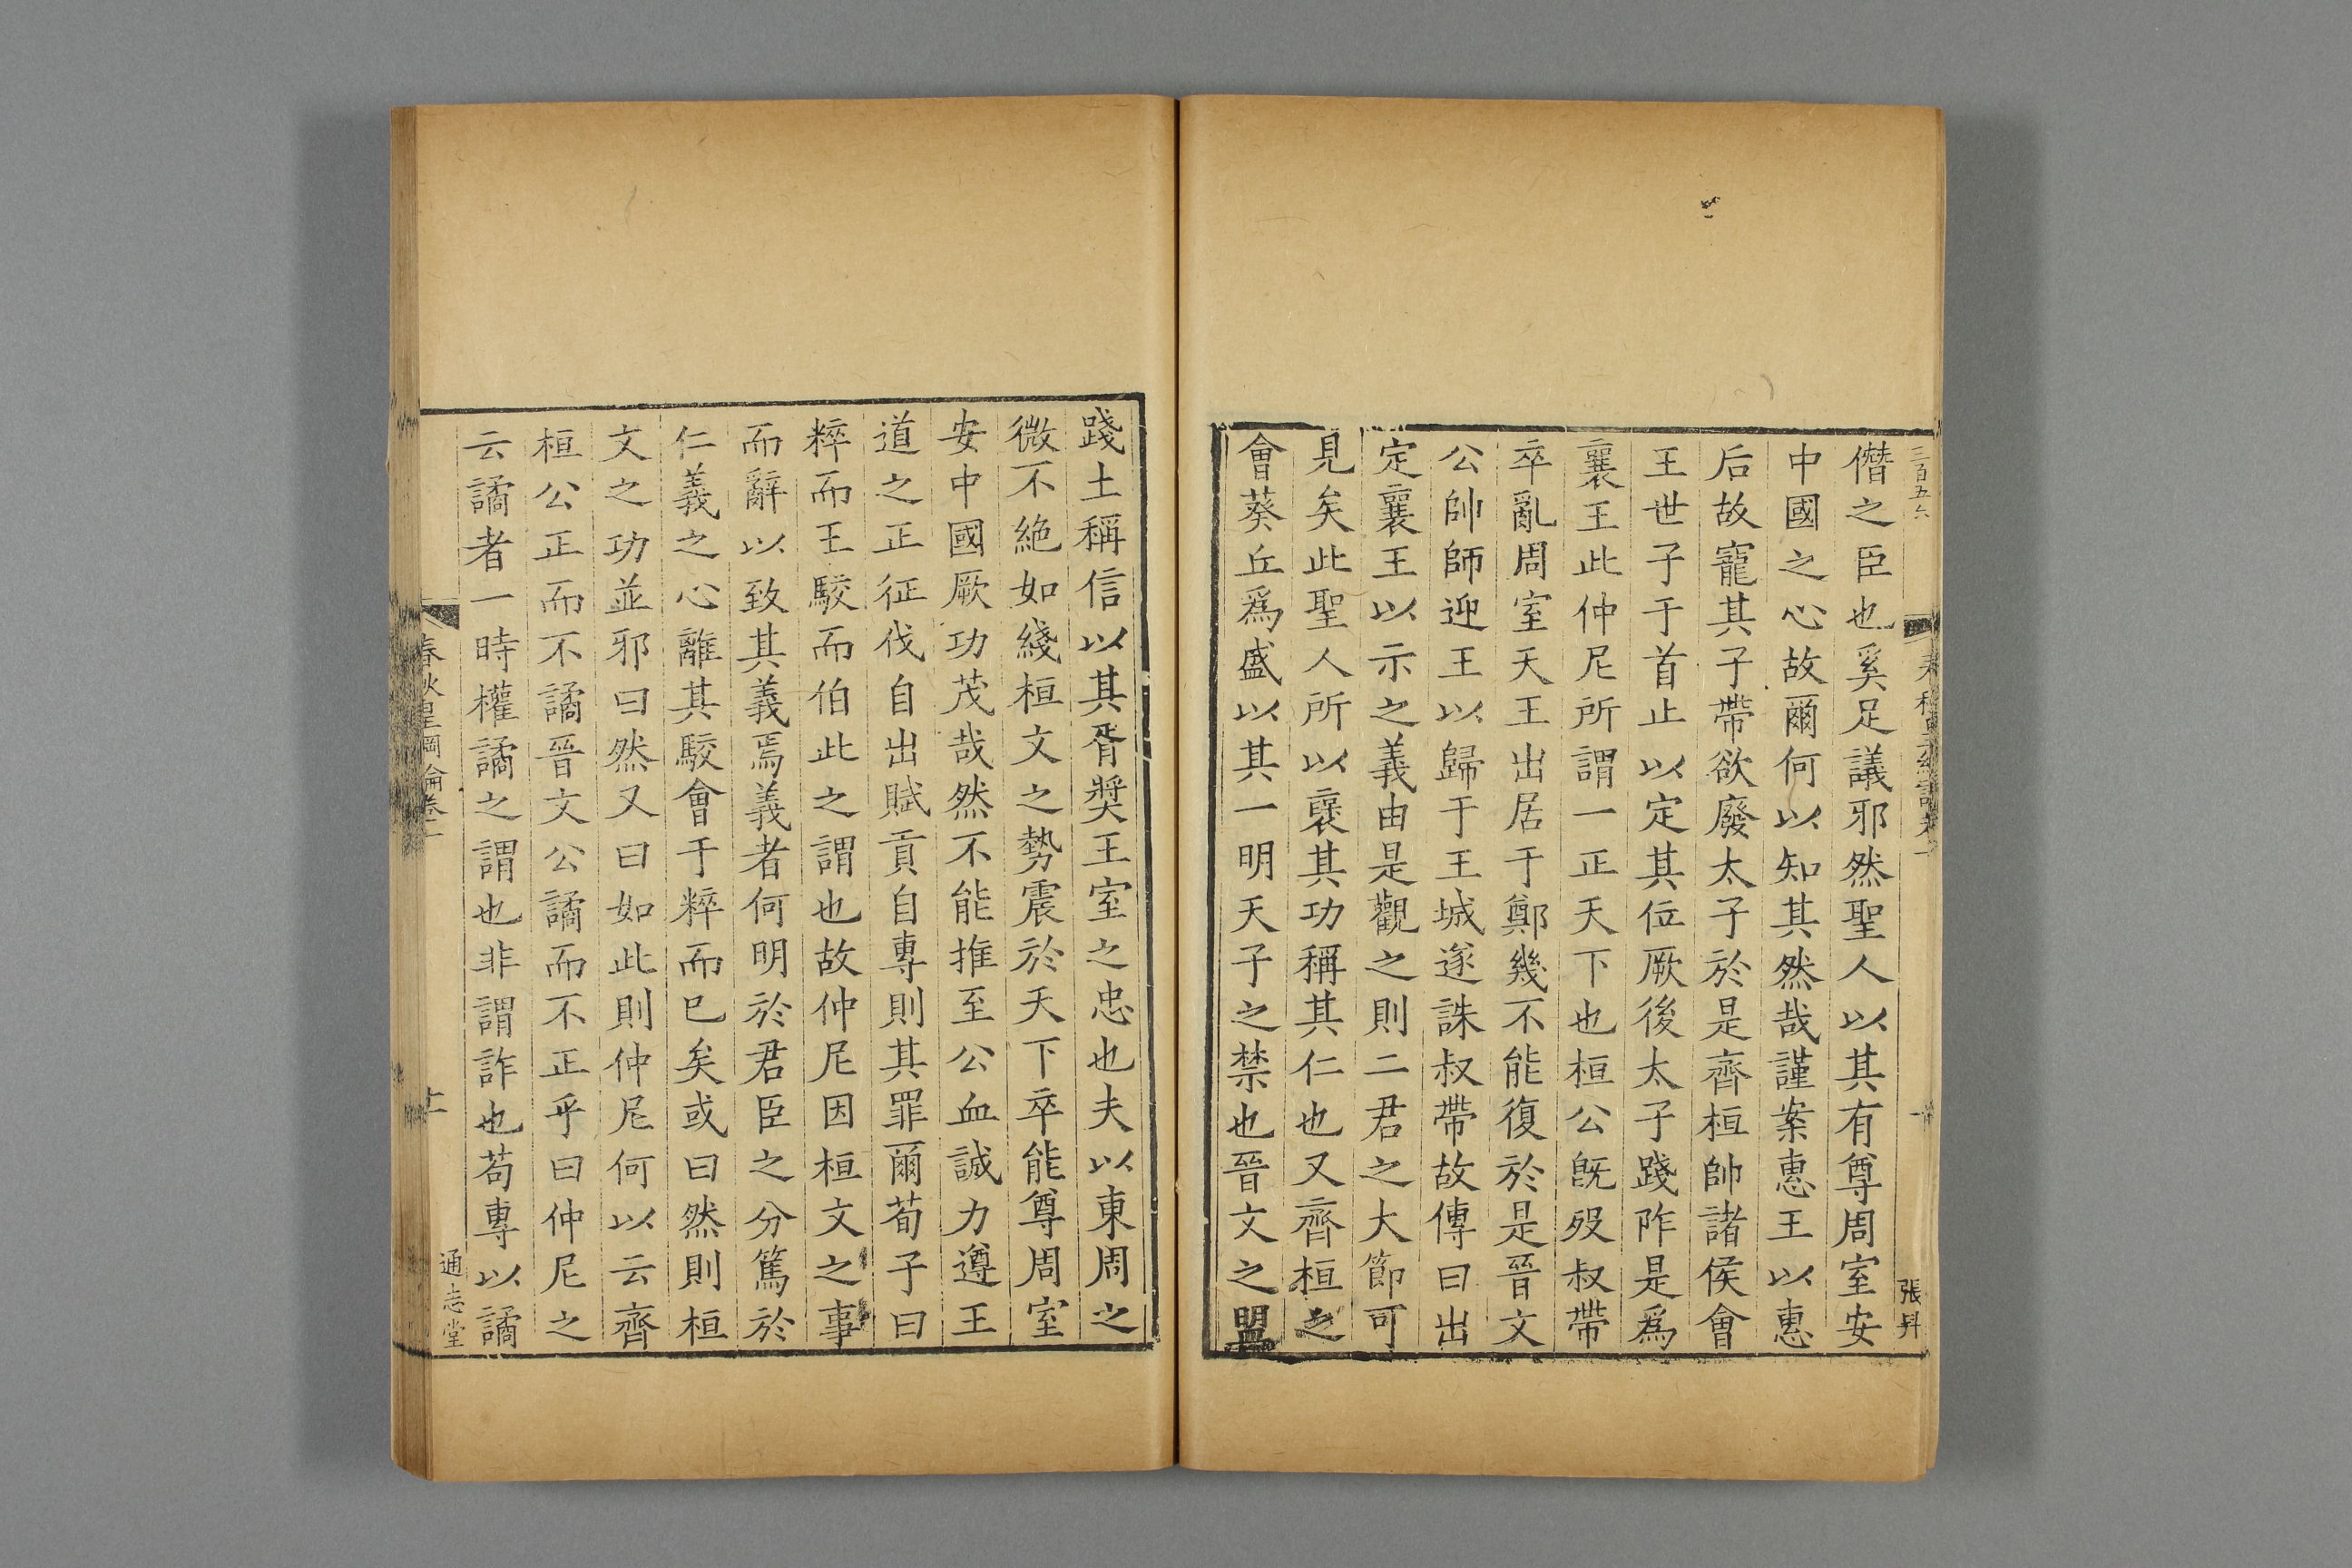 三百五六
張昇
僭之臣也奚足議邪然聖人以其有尊周室安
中國之心故爾何以知其然哉謹案惠王以惠
后故寵其子帶欲廢太子於是齊桓帥諸侯會
王世子于首止以定其位厥後太子踐阼是爲
襄王此仲尼所謂一正天下也桓公旣歿叔帶
卒亂周室天王出居于鄭幾不能復於是晉文
公帥師迎王以歸于王城遂誅叔帶故傳曰出
定襄王以示之義由是觀之則二君之大節可
見矣此聖人所以襃其功稱其仁也又齊桓之
會葵丘爲盛以其一明天子之禁也晉文之盟
踐土稱信以其胥奬王室之忠也夫以東周之
微不絶如綫桓文之勢震於天下卒能尊周室
安中國厥功茂哉然不能推至公血誠力遵王
道之正征伐自出賦貢自專則其罪爾荀子曰
粹而王駮而伯此之謂也故仲尼因桓文之事
而辭以致其義焉義者何明於君臣之分篤於
仁義之心離其駮會于粹而已矣或曰然則桓
文之功並邪曰然又曰如此則仲尼何以云齊
桓公正而不譎晉文公譎而不正乎曰仲尼之
云譎者一時權譎之謂也非謂詐也苟專以譎
春秋皇綱論卷二
通志堂